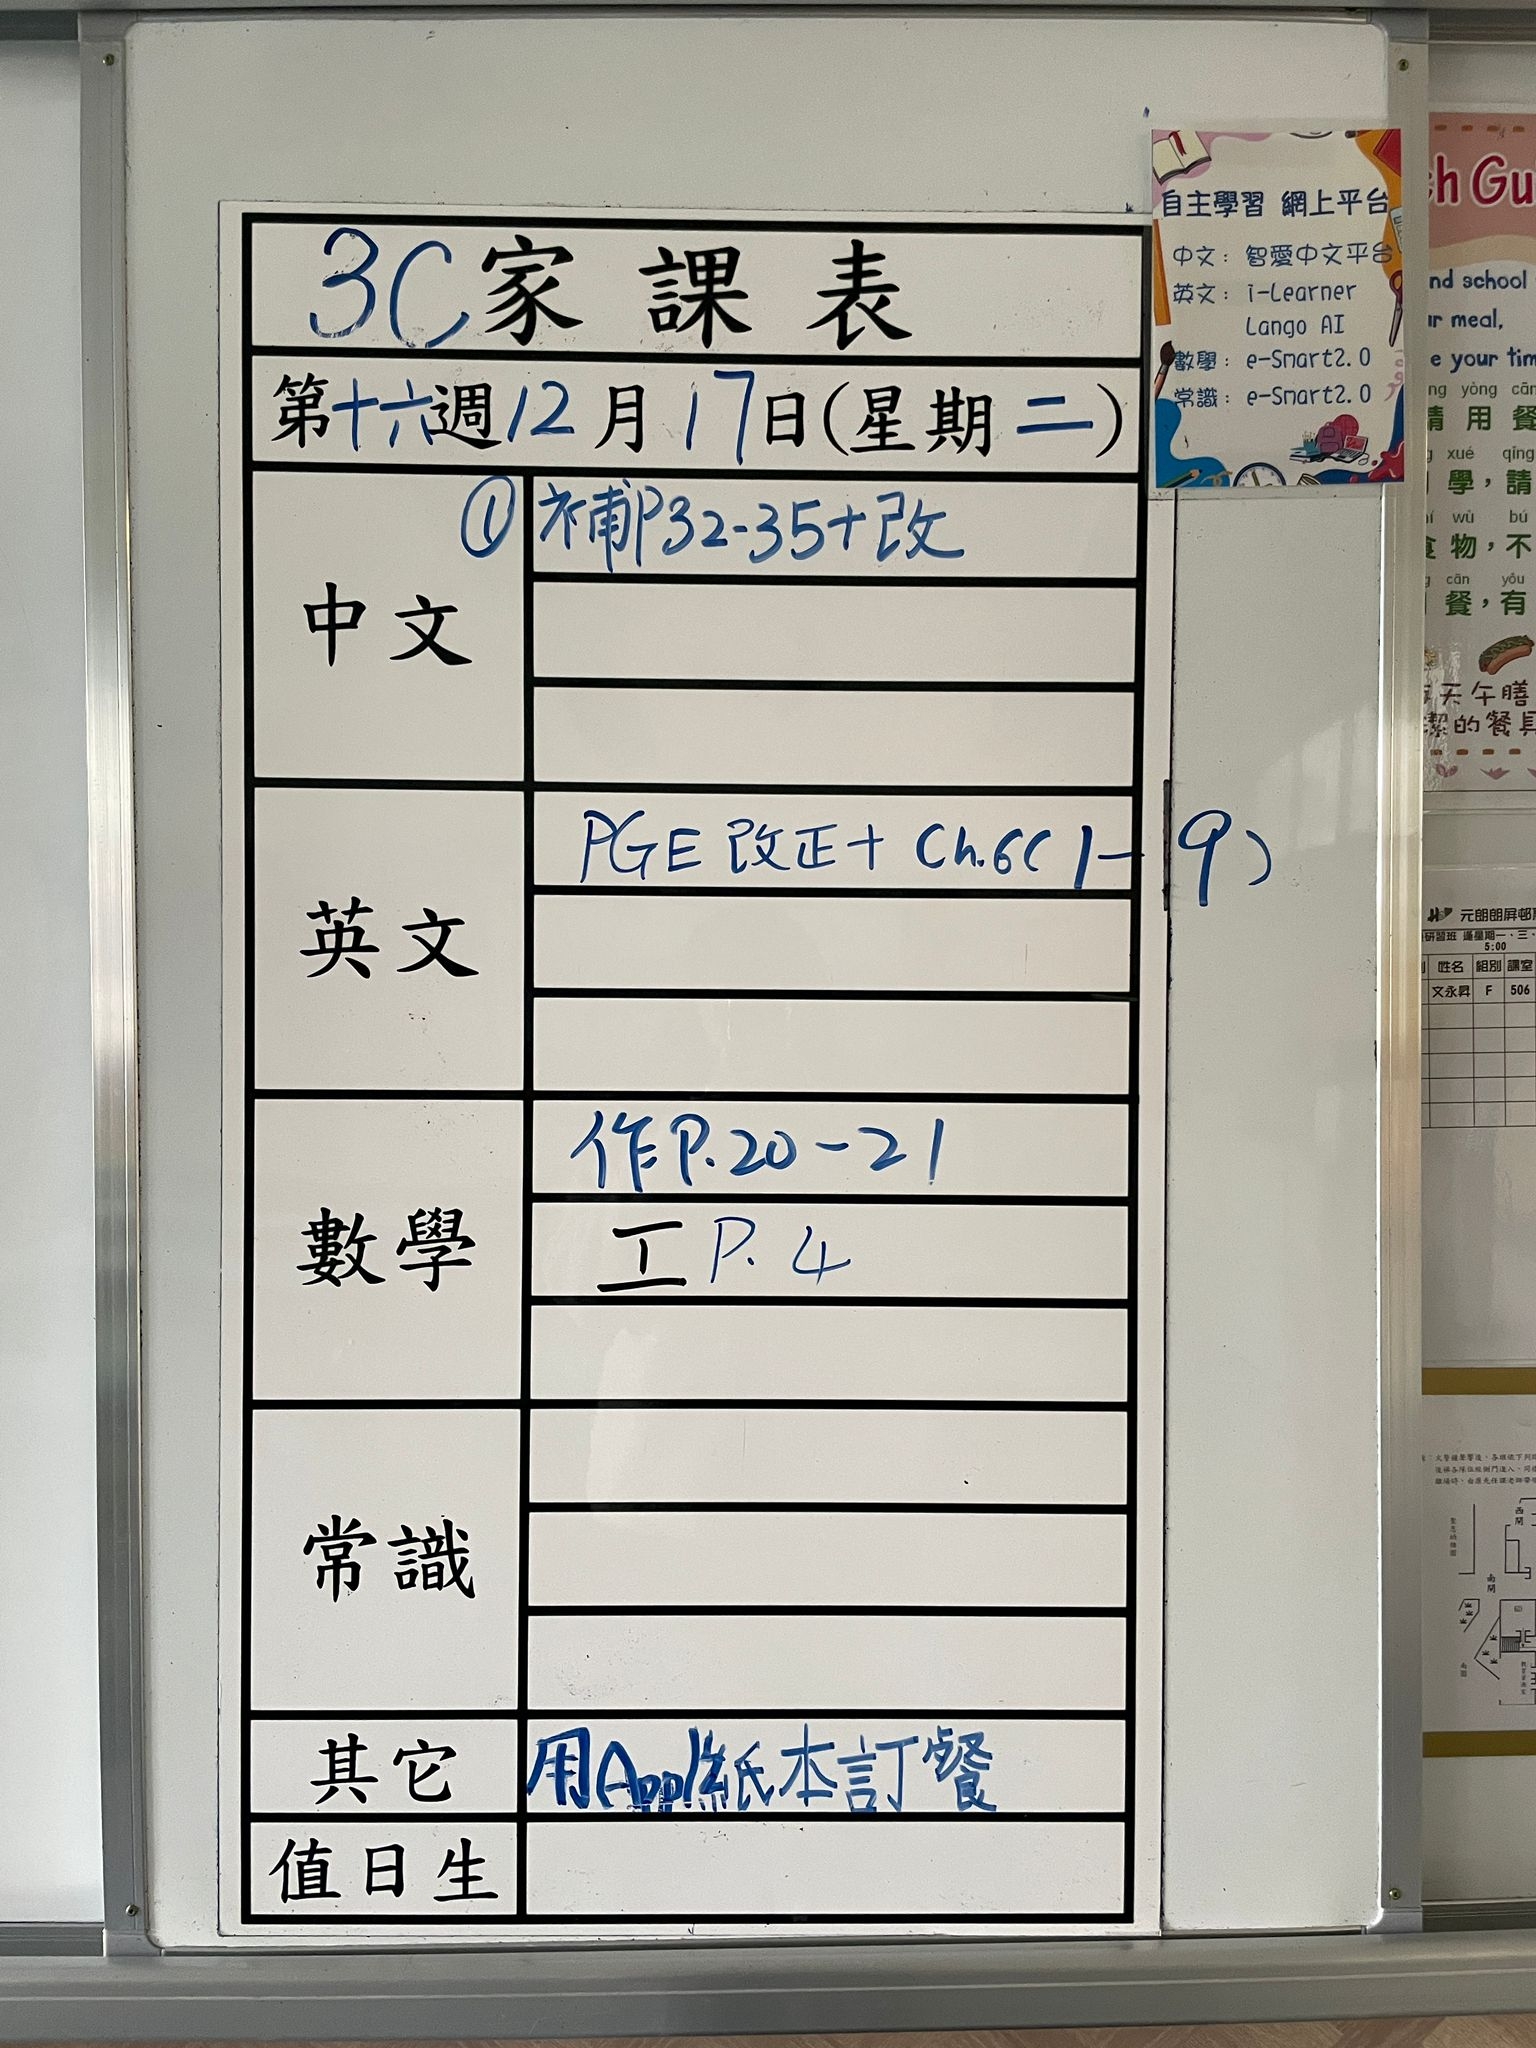 3C家課表
第十六週12月17日(星期二)
中文
① 補P32-35+改
英文
PGE 改正+ Ch.6(1-9)
數學
作P.20-21
工P.4
常識
其它
用App/紙本訂餐
值日生
自主學習 網上平台
中文: 智愛中文平台
英文: i-Learner
Lango AI
數學: e-Smart2.0
常識: e-Smart2.0
ch Gu
nd school
ur meal,
e your tim
ng yòng cān
請用餐
xué qǐng
學,請
wù bú
食物,不
cān yǒu
餐,有
天午膳
潔的餐具
元朗朗屏邨
研習班 逢星期一、三、
5:00
姓名 組別 課室
文永昇 F 506